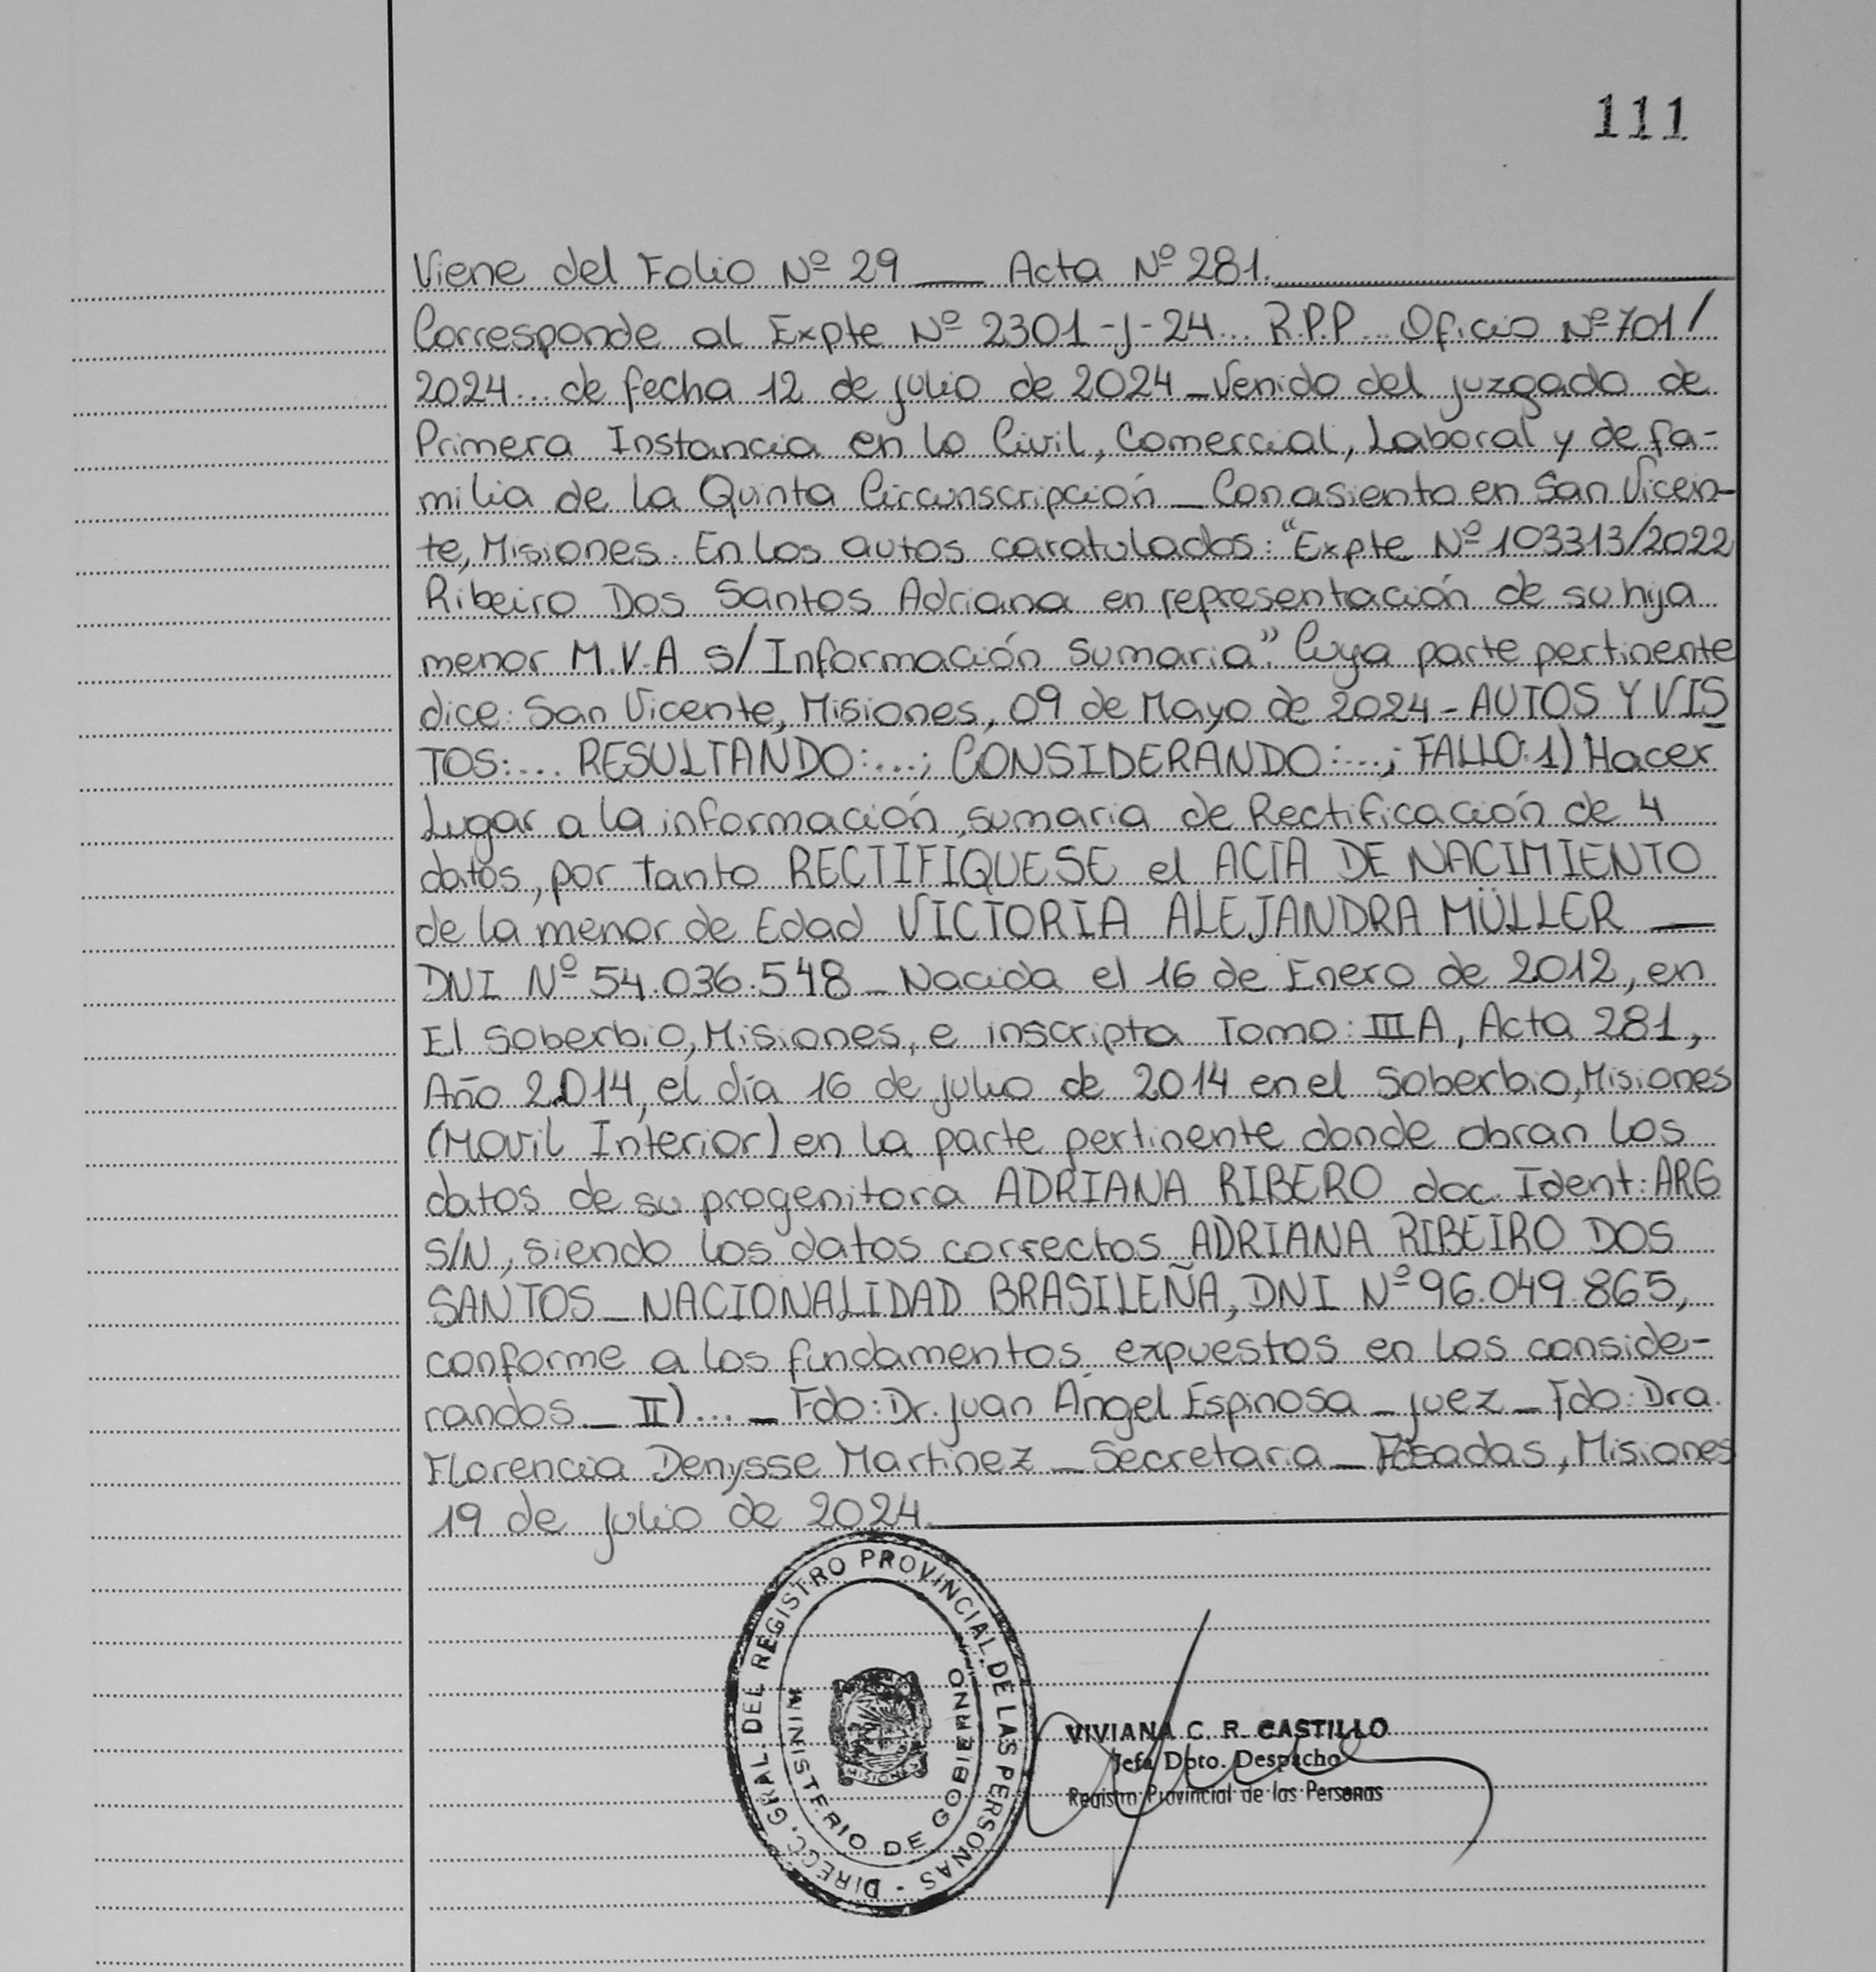 111
Viene del Folio Nº 29 __ Acta Nº 281.
Corresponde al Expte Nº 2301-J-24... R.P.P... Oficio Nº 701/
2024... de fecha 12 de julio de 2024 _ Venido del juzgado de
Primera Instancia en lo Civil, Comercial, Laboral y de fa-
milia de la Quinta Circunscripción _ Con asiento en San Vicein-
te, Misiones. En los autos caratulados: "Expte Nº 103313/2022
Ribeiro Dos Santos Adriana en representación de su hija
menor M.V.A s/Información Sumaria". Cuya parte pertinente
dice: San Vicente, Misiones, 09 de Mayo de 2024 - AUTOS Y VIS
TOS:... RESULTANDO:...; CONSIDERANDO:...; FALLO: 1) Hacer
Lugar a la información sumaria de Rectificación de 4
datos, por tanto RECTIFIQUESE el ACTA DE NACIMIENTO
de la menor de Edad VICTORIA ALEJANDRA MÜLLER __
DNI Nº 54.036.548 _ Nacida el 16 de Enero de 2012, en
El Soberbio, Misiones, e inscripta Tomo: III A, Acta 281,
Año 2014, el día 16 de julio de 2014 en el Soberbio, Misiones
(Movil Interior) en la parte pertinente donde obran los
datos de su progenitora ADRIANA RIBERO doc. Ident: ARG
S/N, siendo los datos correctos ADRIANA RIBEIRO DOS
SANTOS _ NACIONALIDAD BRASILEÑA, DNI Nº 96.049.865,
conforme a los fundamentos expuestos en los conside-
randos _ II)... _ Fdo: Dr. Juan Ángel Espinosa _ Juez _ Fdo: Dra.
Florencia Denysse Martinez _ Secretaria _ Posadas, Misiones
19 de julio de 2024.
DIRECC. GRAL. DEL REGISTRO PROVINCIAL DE LAS PERSONAS -
MINISTERIO DE GOBIERNO
MISIONES
VIVIANA C. R. CASTILLO
Jefa Dpto. Despacho
Registro Provincial de las Personas